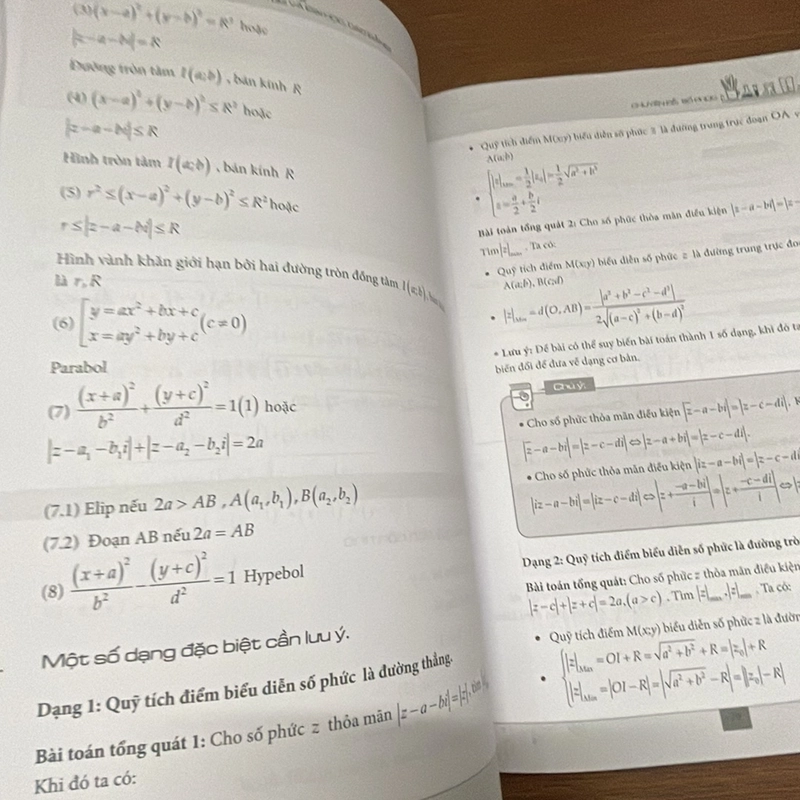 (3) (x-a)² + (y-b)² = R² hoặc
|z-a-bi| = R
Đường tròn tâm I(a;b), bán kính R
(4) (x-a)² + (y-b)² ≤ R² hoặc
|z-a-bi| ≤ R
Hình tròn tâm I(a;b), bán kính R
(5) r² ≤ (x-a)² + (y-b)² ≤ R² hoặc
r ≤ |z-a-bi| ≤ R
Hình vành khăn giới hạn bởi hai đường tròn đồng tâm I(a;b),
là r, R
(6) [y = ax² + bx + c
x = ay² + by + c (c ≠ 0)
Parabol
(7) (x+a)²/b² + (y+c)²/d² = 1 (1) hoặc
|z-a₁-b₁i| + |z-a₂-b₂i| = 2a
(7.1) Elip nếu 2a > AB, A(a₁,b₁), B(a₂,b₂)
(7.2) Đoạn AB nếu 2a = AB
(8) (x+a)²/b² - (y+c)²/d² = 1 Hypebol
Một số dạng đặc biệt cần lưu ý.
Dạng 1: Quỹ tích điểm biểu diễn số phức là đường thẳng.
Bài toán tổng quát 1: Cho số phức z thỏa mãn |z-a-bi| = |z|, tìm
Khi đó ta có:
• Quỹ tích điểm M(x;y) biểu diễn số phức z là đường trung trực đoạn OA
A(a;b)
• {|z|Min = 1/2|z₀| = 1/2√(a²+b²)
z = a/2 + b/2 i
Bài toán tổng quát 2: Cho số phức thỏa mãn điều kiện |z-a-bi| = |z-
Tìm |z|min. Ta có:
• Quỹ tích điểm M(x;y) biểu diễn số phức z là đường trung trực
A(a;b), B(c;d)
• |z|Min = d(O, AB) = |a²+b²-c²-d²| / 2√((a-c)²+(b-d)²)
* Lưu ý: Đề bài có thể suy biến bài toán thành 1 số dạng, khi đó
biến đổi để đưa về dạng cơ bản.
Chú ý:
• Cho số phức thỏa mãn điều kiện |z̄-a-bi| = |z-c-di|.
|z̄-a-bi| = |z-c-di| ⇔ |z-a+bi| = |z-c-di|.
• Cho số phức thỏa mãn điều kiện |iz-a-bi| = |z-c-di
|iz-a-bi| = |iz-c-di| ⇔ |z + (-a-bi)/i| = |z + (-c-di)/i| ⇔
Dạng 2: Quỹ tích điểm biểu diễn số phức là đường
Bài toán tổng quát: Cho số phức z thỏa mãn điều kiện
|z-c| + |z+c| = 2a, (a > c). Tìm |z|max, |z|min. Ta có:
• Quỹ tích điểm M(x;y) biểu diễn số phức z là
• {|z|Max = OI + R = √(a²+b²) + R = |z₀| + R
|z|Min = |OI - R| = |√(a²+b²) - R| = ||z₀| - R|